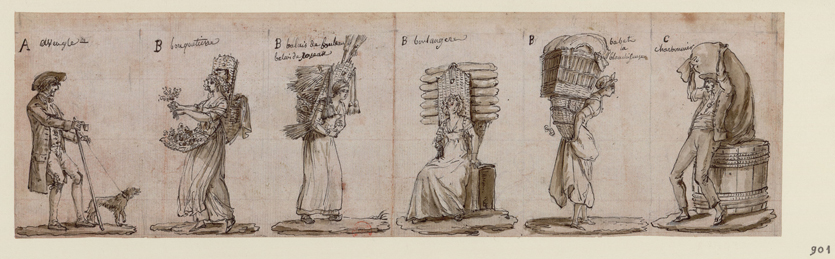 A aveugle
B bouquetiere
B balais de bouleau
balai de roseau
B boulangere
B babet
la
blanchisseuse
C
charbonnier
901